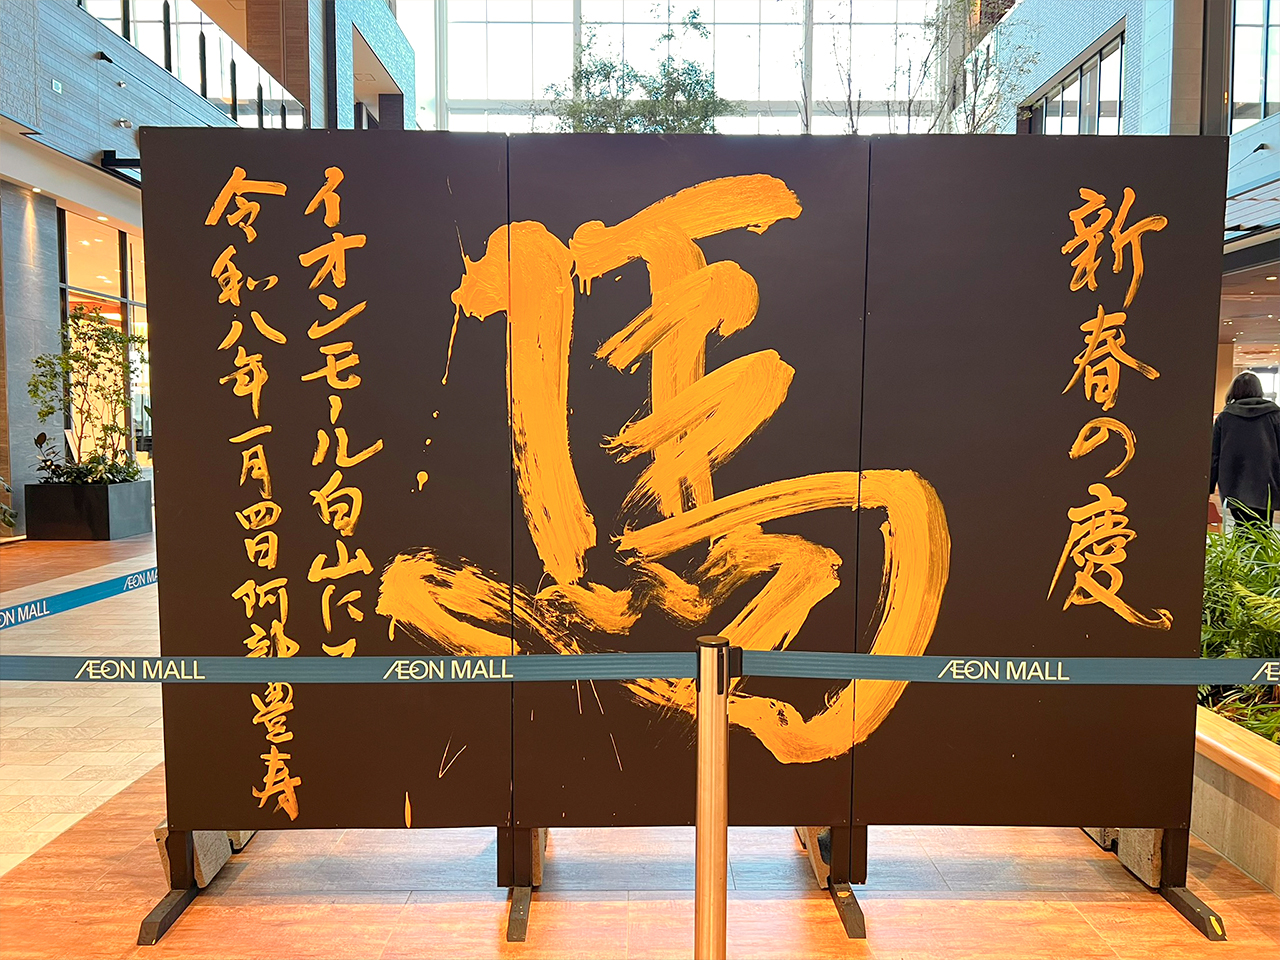 新春の慶
馬
イオンモール白山にて
令和八年一月四日阿部豊寿
ÆON MALL
ÆON MALL
ÆON MALL
ÆON MALL
ÆON MA